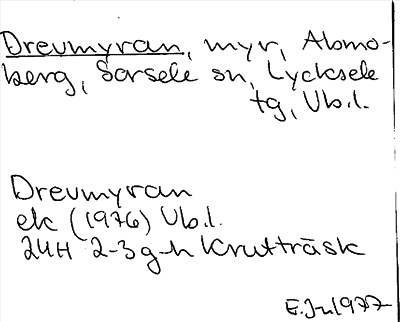 Drevmyran, myr, Abmo-
berg, Sorsele sn, Lycksele
tg, Vb.l.
Drevmyran
ek (1976) Vb.l.
24H 2-3 g-h Krutträsk
E.Jn 1977